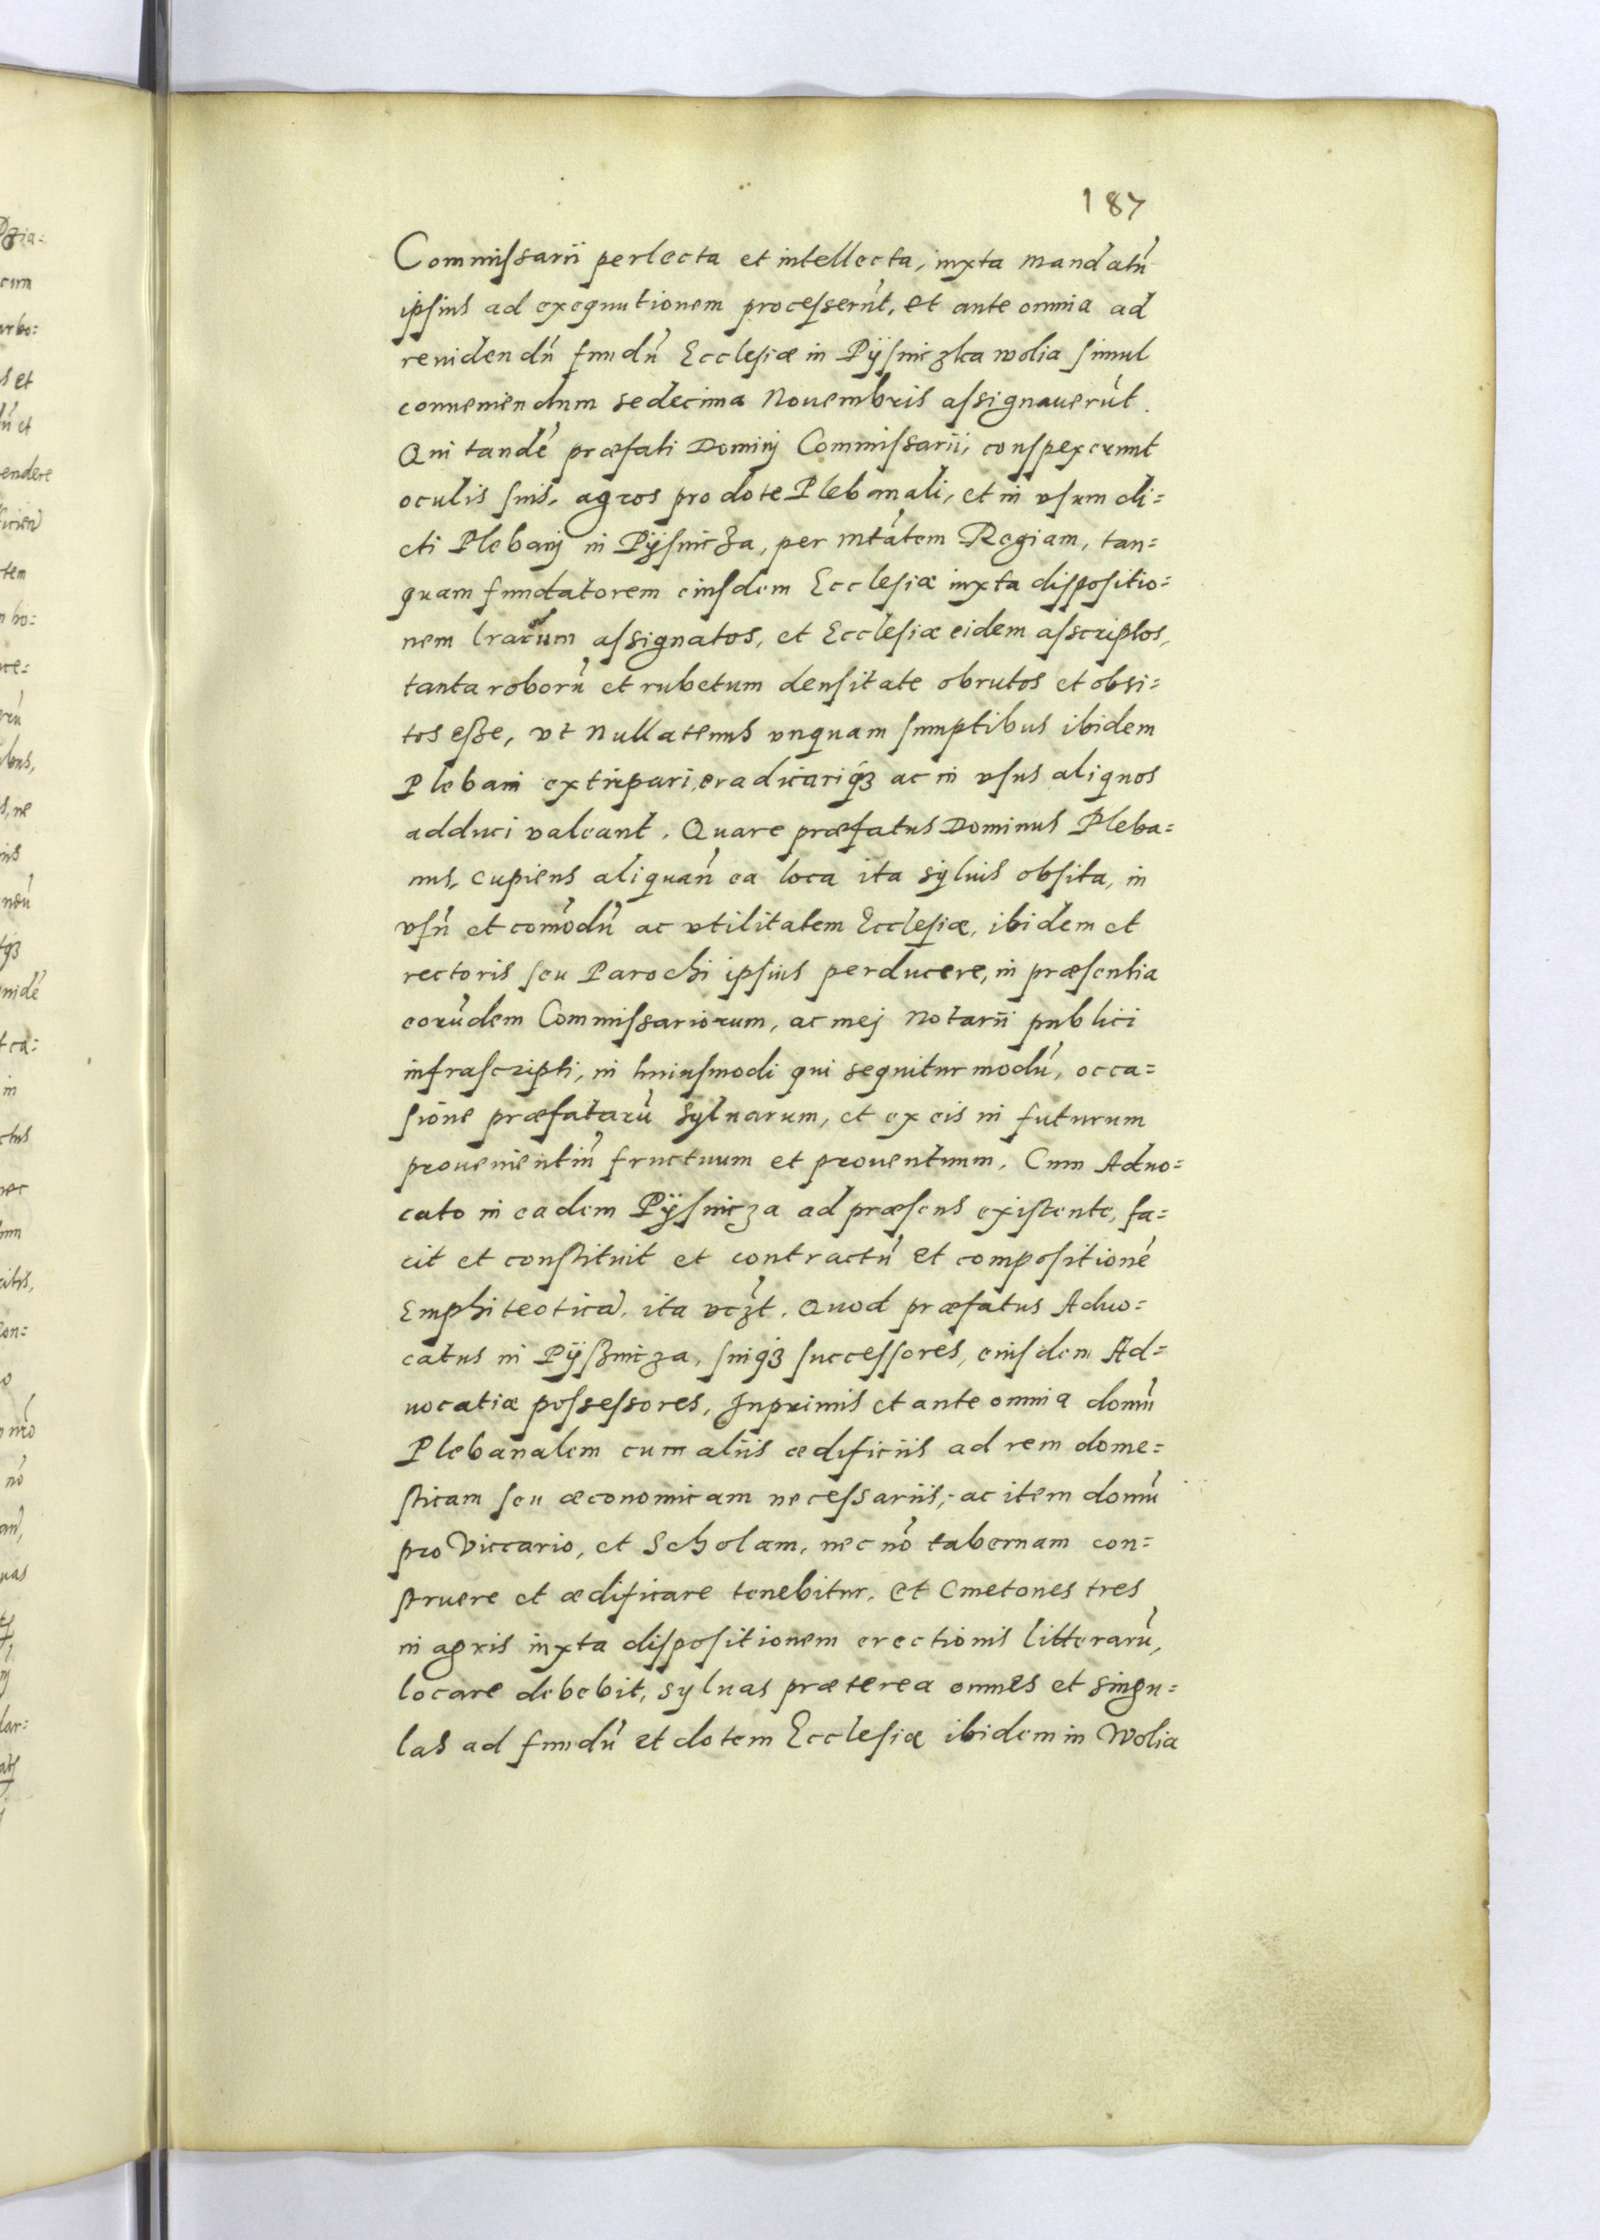 187
Commiſsarii perlecta et intellecta, iuxta mandatū
ipſius ad exequutionem proceſserūt, et ante omnia ad
reuidendū fundū Eccleſiæ in Pÿſniczka wolia ſimul
conueniendum sedecima Nouembris aſsignauerūt.
Qui tandē præfati Dominj Commiſsarii, conſpexerunt
oculis ſuis, agros pro dote Plebanali, et in vſum di=
cti Plebanj in Pÿſnicza, per Mtātem Regiam, tan=
quam fundatorem eiuſdem Eccleſiæ iuxta diſpoſitio=
nem lrarum aſsignatos, et Eccleſiæ eidem aſscriptos,
tanta roborū et rubetum denſitate obrutos et obsi=
tos eſze, vt nullatenus vnquam ſumptibus ibidem
Plebani extirpari, eradicariq́ꝫ ac in vſus aliquos
adduci valeant. Quare præfatus Dominus Pleba=
nus, cupiens aliquan̄ ea loca ita sÿluis obſita, in
vſū et com̄odū ac vtilitatem Eccleſiæ, ibidem et
rectoris ſeu Parochi ipſius perducere, in præſentia
eorūdem Commiſsariorum, ac mej Notarii publici
infraſcripti, in huiuſmodi qui sequitur modū, occa=
ſione præfatarū Syluarum, et ex eis in futurum
prouenientiū fructuum et prouentuum. Cum Aduo=
cato in eadem Pÿſnicza ad præſens exiſtente, fa=
cit et conſtituit et contractū et compoſitionē
Emphiteoticā, ita vcꝫt. Quod præfatus Aduo=
catus in Pÿſznicza, ſuiq́ꝫ ſucceſſores, eiuſdem Ad=
uocatiæ poſseſsores, Inprimis et ante omnia domū
Plebanalem cum aliis ædificiis ad rem dome=
ſticam ſeu æconomicam neceſsariis, ac item domū
pro Viccario, et Scholam, nec nō tabernam con=
ſtruere et ædificare tenebitur, et Cmetones tres
in agris iuxta diſpoſitionem erectionis litterarū,
locare debebit, syluas præterea omnes et singu=
las ad fundū et dotem Eccleſiæ ibidem in Wolia